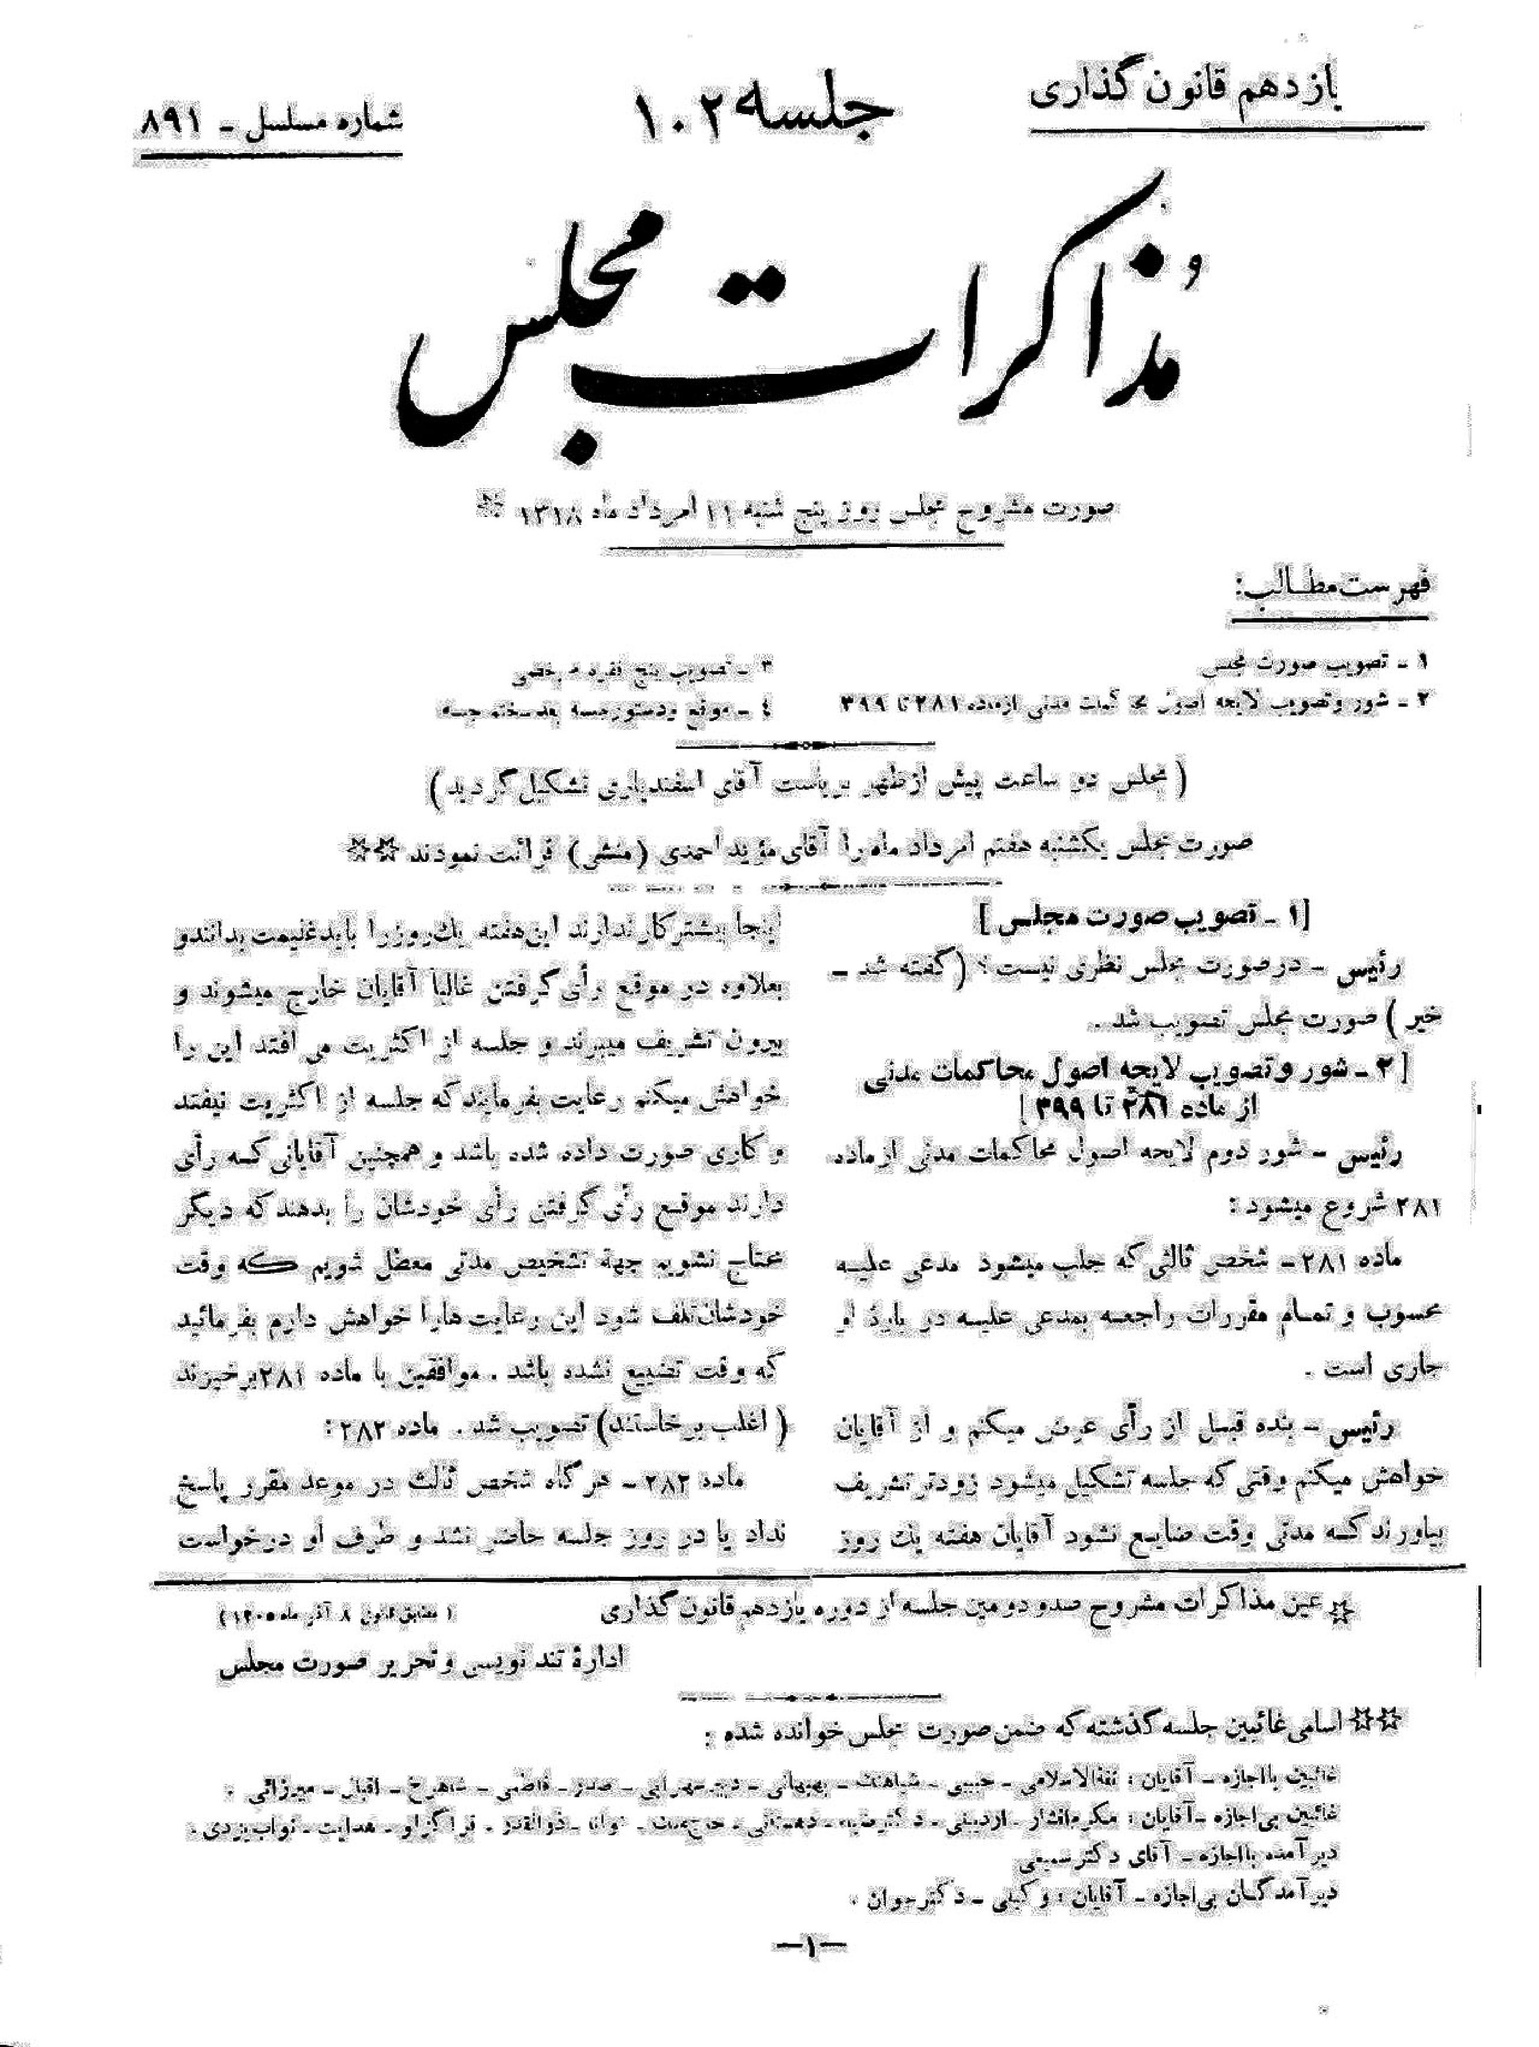 یازدهم قانون گذاری
جلسه ۱۰۲
شماره مسلسل ـ ۸۹۱
مذاکرات مجلس
صورت مشروح مجلس روز پنج شنبه ۱۱ امرداد ماه ۱۳۱۸ ☆
فهرست مطالب:
۱ ـ تصویب صورت مجلس
۲ ـ شور و تصویب لایحه اصول محاکمات مدنی از ماده ۲۸۱ تا ۳۹۹
۳ ـ تصویب پنج فقره مرخصی
٤ ـ موقع و دستور جلسه بعد ـ ختم جلسه
( مجلس دو ساعت پیش از ظهر بریاست آقای اسفندیاری تشکیل گردید )
صورت مجلس یکشنبه هفتم امرداد ماه را آقای مؤید احمدی (منشی) قرائت نمودند ☆☆
[۱ ـ تصویب صورت مجلس ]
رئیس ـ در صورت مجلس نظری نیست؟ (گفته شد ـ
خیر ) صورت مجلس تصویب شد .
[ ۲ ـ شور و تصویب لایحه اصول محاکمات مدنی
از ماده ۲۸۱ تا ۳۹۹ ]
رئیس ـ شور دوم لایحه اصول محاکمات مدنی از ماده
۲۸۱ شروع میشود :
ماده ۲۸۱ ـ شخص ثالثی که جلب میشود مدعی علیه
محسوب و تمام مقررات راجعه بمدعی علیه در بارۀ او
جاری است .
رئیس ـ بنده قبل از رأی عرض میکنم و از آقایان
خواهش میکنم وقتی که جلسه تشکیل میشود زودتر تشریف
بیاورند که مدتی وقت ضایع نشود آقایان هفته یك روز
اینجا بیشتر کار ندارند این هفته یك روز را باید غنیمت بدانند و
بعلاوه در موقع رأی گرفتن غالباً آقایان خارج میشوند و
بیرون تشریف میبرند و جلسه از اکثریت می افتد این را
خواهش میکنم رعایت بفرمایند که جلسه از اکثریت نیفتد
و کاری صورت داده شده باشد و همچنین آقایانی که رأی
دارند موقع رأی گرفتن رأی خودشان را بدهند که دیگر
محتاج نشویم جهة تشخیص مدتی معطل شویم که وقت
خودشان تلف شود این رعایت هارا خواهش دارم بفرمائید
که وقت تضییع نشده باشد . موافقین با ماده ۲۸۱ برخیزند
( اغلب برخاستند ) تصویب شد . ماده ۲۸۲ :
ماده ۲۸۲ ـ هرگاه شخص ثالث در موعد مقرر پاسخ
نداد یا در روز جلسه حاضر نشد و طرف او درخواست
☆ عین مذاکرات مشروح صدو دومین جلسه از دوره یازدهم قانون گذاری
( مطابق قانون ۸ آذر ماه ۱۳۰۵ )
ادارۀ تند نویسی و تحریر صورت مجلس
☆☆ اسامی غائبین جلسه گذشته که ضمن صورت مجلس خوانده شده :
غائبین با اجازه ـ آقایان : ثقةالاسلامی ـ حبیبی ـ شباهنگ ـ بهبهانی ـ دبیر سهرابی ـ صدر ـ فاطمی ـ شاهرخ ـ اقبال ـ میرزائی .
غائبین بی اجازه ـ آقایان : مکرم افشار ـ اردبیلی ـ دکتر ضیاء ـ دهستانی ـ ـ توانا ـ ذوالقدر ـ قراگزلو ـ هدایت ـ نواب یزدی .
دیر آمده با اجازه ـ آقای دکتر سمیعی
دیر آمدگان بی اجازه ـ آقایان : وکیلی ـ دکتر جوان .
ـ۱ـ